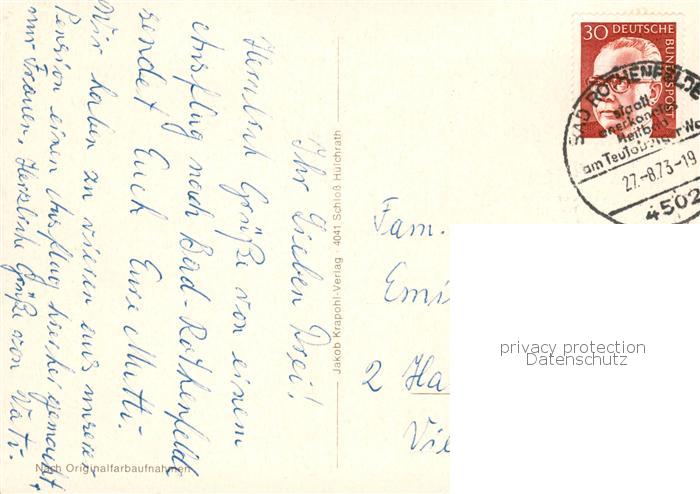 Ihr Lieben Drei!
Herzlich Grüße von einem
Ausflug nach Bad-Rothenfelde
sendet Euch Eure Mutti.
Wir haben zu vieren aus unserer
Pension einen Ausflug hierher gemacht,
nur Frauen, Herzliche Grüße von Vati.
Nach Originalfarbaufnahmen
Jakob Krapohl-Verlag · 4041 Schloß Hülchrath
30 DEUTSCHE
BUNDESPOST
BAD ROTHENFELDE
staatl.
anerkanntes
Heilbad
am Teutoburger Wa
27.-8.73-19
4502
Fam.
Emi
2 Ha
Vie
privacy protection
Datenschutz